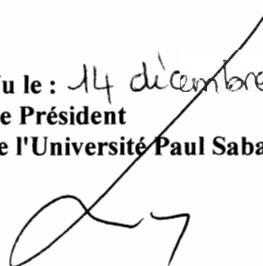 u le : 14 décembre
e Président
e l'Université Paul Saba